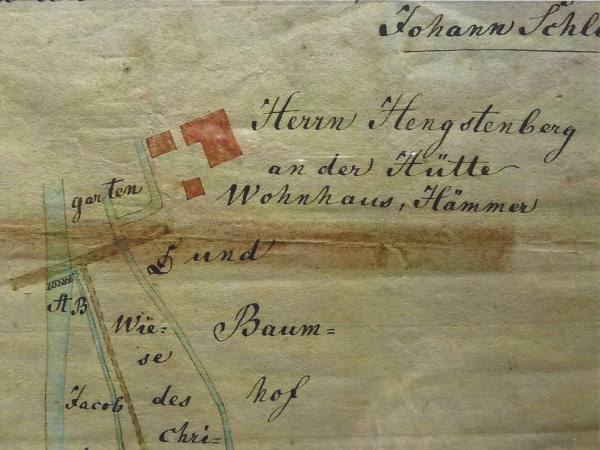 Johann
Herrn Hengstenberg
an der Hütte
Wohnhaus, Hämmer
garten
und
A B
Wie=
se
Baum=
Jacob
des
hof
Chri=